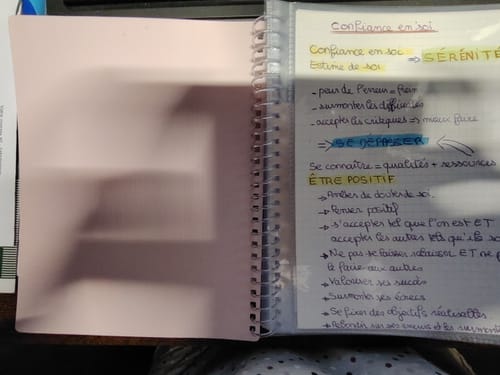 Confiance en soi
Confiance en soi
Estime de soi
⇒ SÉRÉNITÉ
- peur de l'erreur = frein
- surmonter les difficultés
- accepter les critiques ⇒ mieux faire
⇒ SE DÉPASSER
Se connaître = qualités + ressources
ÊTRE POSITIF
→ Arrêter de douter de soi
→ Penser positif
→ s'accepter tel que l'on est ET
accepter les autres tels qu'ils so
→ Ne pas se laisser ET ne p
le faire aux autres
→ Valoriser ses succès
→ Surmonter ses échecs
→ Se fixer des objectifs réalisables
→ Rebondir sur ses erreurs et les surmont